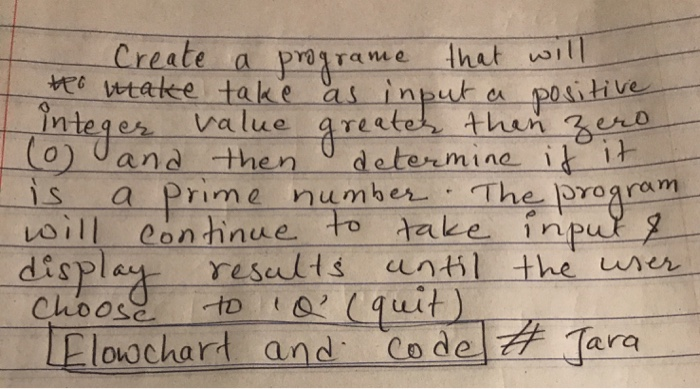 Create a programe that will
take as input a positive
integer value greater than zero
(0) and then determine if it
is a prime number. The program
will continue to take input &
display results until the user
choose to 'Q' (quit)
[Flowchart and code] # Java